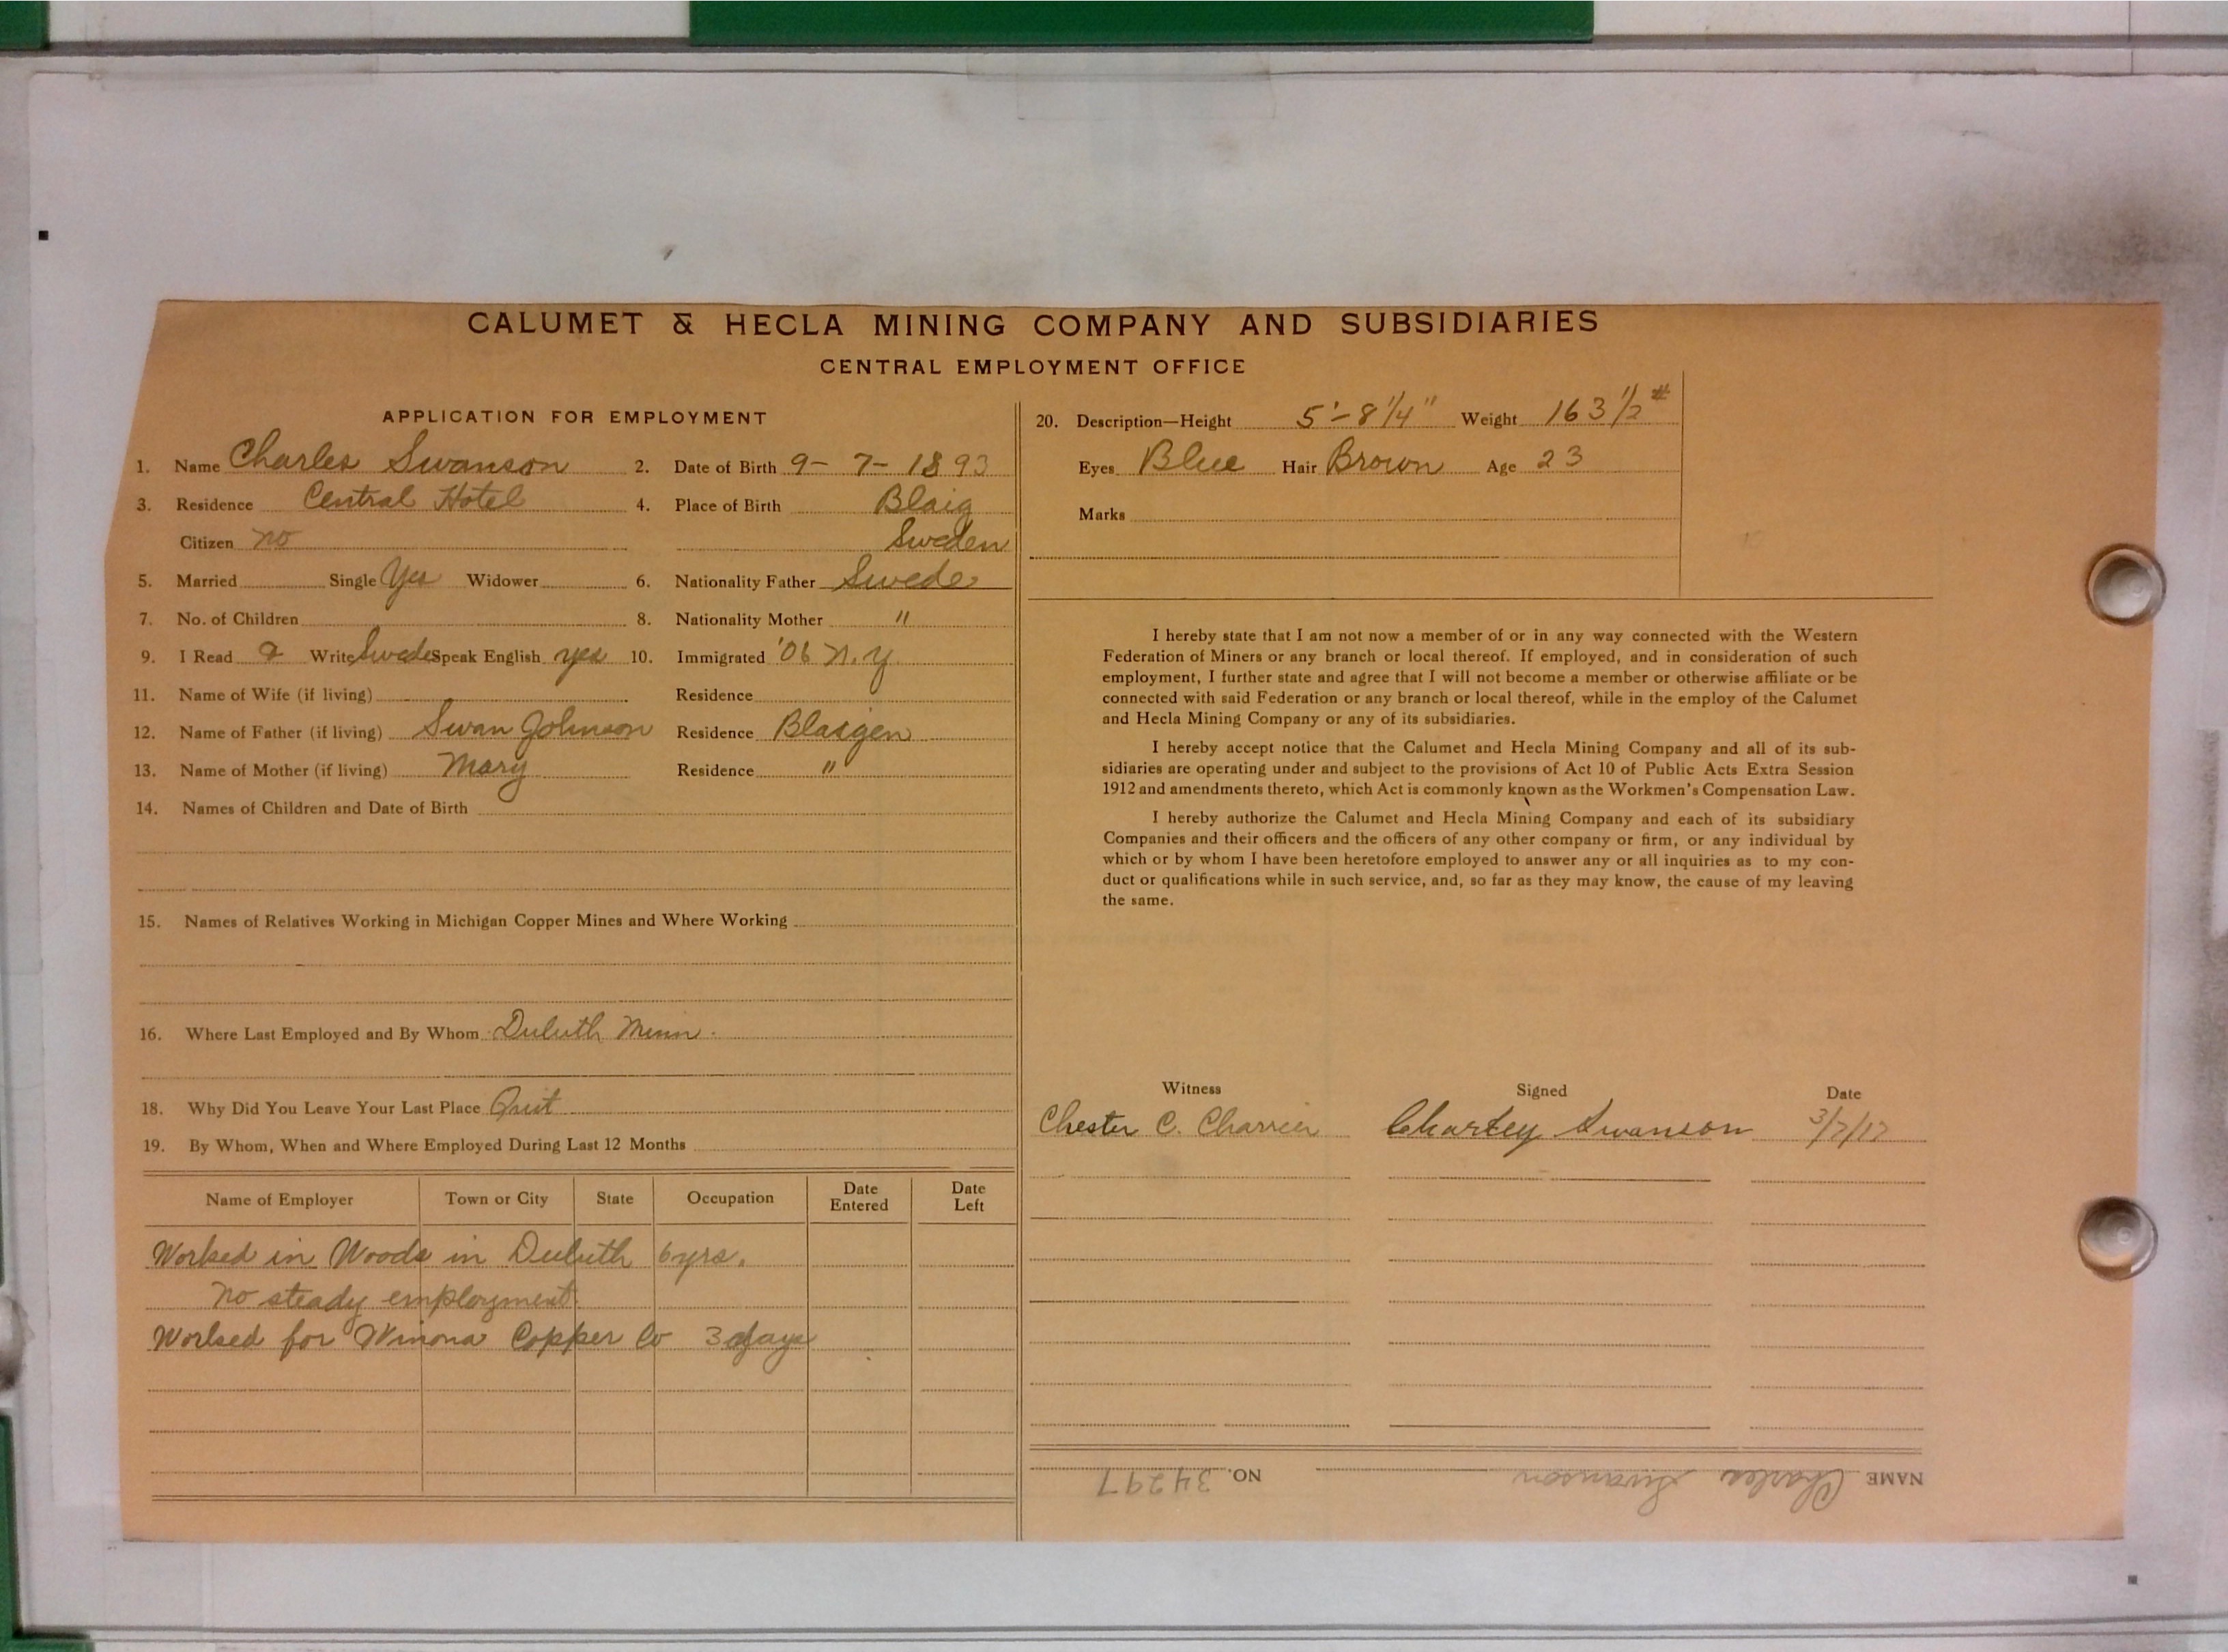 CALUMET & HECLA MINING COMPANY AND SUBSIDIARIES
CENTRAL EMPLOYMENT OFFICE
APPLICATION FOR EMPLOYMENT
1. Name Charles Swanson 2. Date of Birth 9-7-1893
3. Residence Central Hotel 4. Place of Birth Blaig
Citizen no Sweden
5. Married Single Yes Widower 6. Nationality Father Swede
7. No. of Children 8. Nationality Mother "
9. I Read & Write Swede Speak English yes 10. Immigrated '06 N.Y.
11. Name of Wife (if living) Residence
12. Name of Father (if living) Swan Johnson Residence Blasgen
13. Name of Mother (if living) Mary Residence "
14. Names of Children and Date of Birth
15. Names of Relatives Working in Michigan Copper Mines and Where Working
16. Where Last Employed and By Whom Duluth Minn.
18. Why Did You Leave Your Last Place Quit
19. By Whom, When and Where Employed During Last 12 Months
Name of Employer Town or City State Occupation Date Entered Date Left
Worked in Woods in Duluth 6 yrs.
No steady employment.
Worked for Winona Copper Co 3 days
20. Description—Height 5'-8 1/4" Weight 163 1/2 #
Eyes Blue Hair Brown Age 23
Marks
I hereby state that I am not now a member of or in any way connected with the Western
Federation of Miners or any branch or local thereof. If employed, and in consideration of such
employment, I further state and agree that I will not become a member or otherwise affiliate or be
connected with said Federation or any branch or local thereof, while in the employ of the Calumet
and Hecla Mining Company or any of its subsidiaries.
I hereby accept notice that the Calumet and Hecla Mining Company and all of its sub-
sidiaries are operating under and subject to the provisions of Act 10 of Public Acts Extra Session
1912 and amendments thereto, which Act is commonly known as the Workmen's Compensation Law.
I hereby authorize the Calumet and Hecla Mining Company and each of its subsidiary
Companies and their officers and the officers of any other company or firm, or any individual by
which or by whom I have been heretofore employed to answer any or all inquiries as to my con-
duct or qualifications while in such service, and, so far as they may know, the cause of my leaving
the same.
Witness Signed Date
Chester C. Charrier Charley Swanson 3/7/17
NAME Charles Swanson NO. 34297